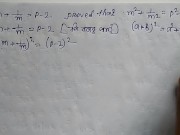 m + 1/m = p-2 proved that m² + 1/m² = p²
m + 1/m = p-2 (a+b)² = a²+
(m + 1/m)² = (p-2)²